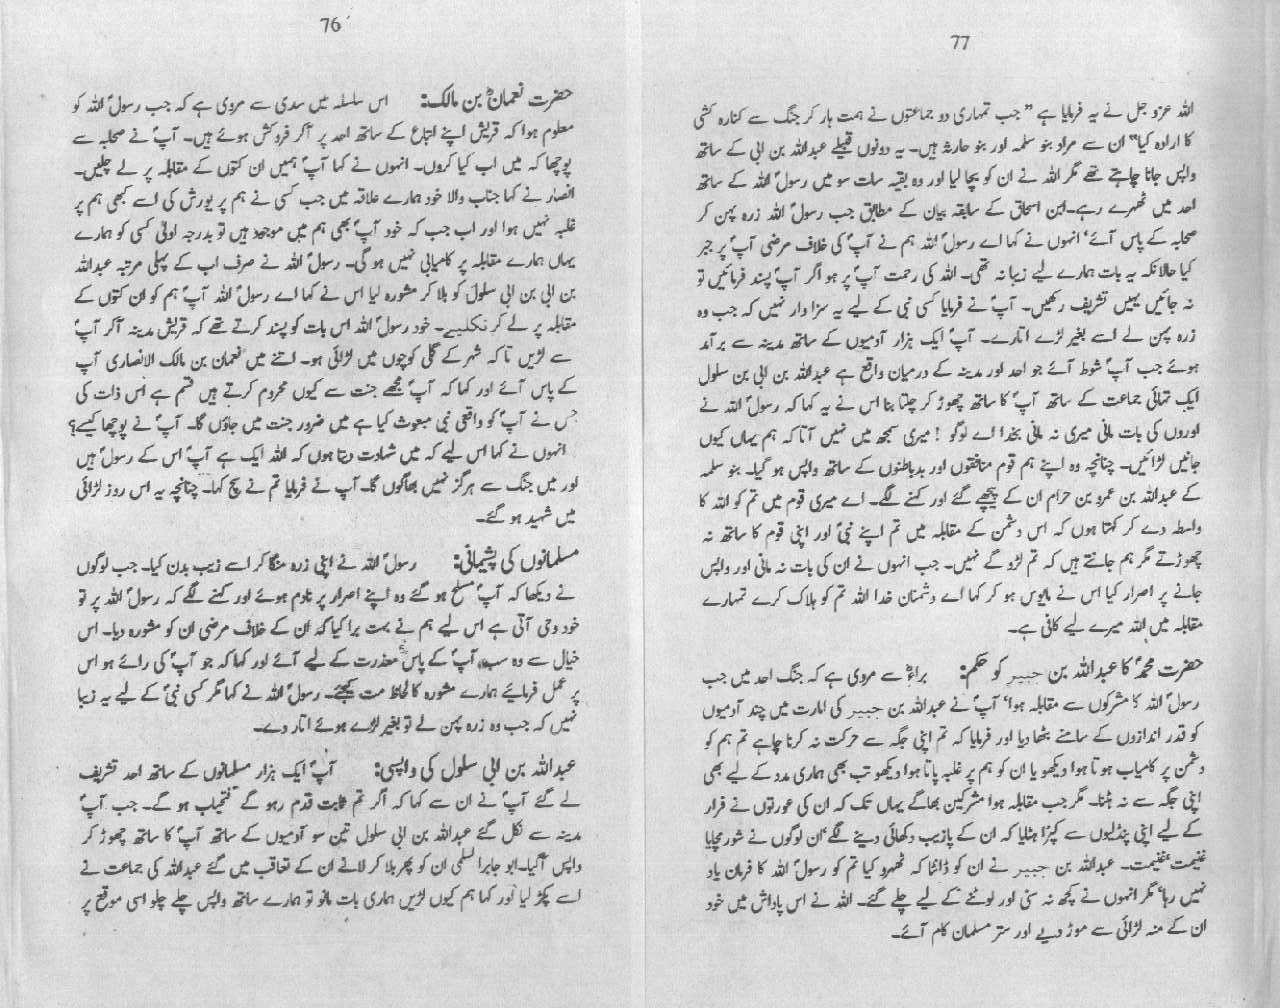 76
حضرت نعمانؓ بن مالک: اس سلسلہ میں سدی سے مروی ہے کہ جب رسولؐ اللہ کو
معلوم ہوا کہ قریش اپنے اتباع کے ساتھ احد پر آکر فروکش ہوئے ہیں۔ آپؐ نے صحابہ سے
پوچھا کہ میں اب کیا کروں۔ انہوں نے کہا آپؐ ہمیں ان کتوں کے مقابلہ پر لے چلیں۔
انصار نے کہا جناب والا خود ہمارے علاقہ میں جب کسی نے ہم پر یورش کی اسے کبھی ہم پر
غلبہ نہیں ہوا اور اب جب کہ خود آپؐ بھی ہم میں موجود ہیں تو بدرجہ اولیٰ کسی کو ہمارے
یہاں ہمارے مقابلہ پر کامیابی نہیں ہو گی۔ رسولؐ اللہ نے صرف اب کے پہلی مرتبہ عبداللہ
بن ابی بن ابی سلول کو بلا کر مشورہ لیا اس نے کہا اے رسولؐ اللہ آپؐ ہم کو ان کتوں کے
مقابلہ پر لے کر نکلیے۔ خود رسولؐ اللہ اس بات کو پسند کرتے تھے کہ قریش مدینہ آکر آپؐ
سے لڑیں تا کہ شہر کے گلی کوچوں میں لڑائی ہو۔ اتنے میں نعمان بن مالک الانصاری آپ
کے پاس آئے اور کہا کہ آپؐ مجھے جنت سے کیوں محروم کرتے ہیں قسم ہے اس ذات کی
جس نے آپؐ کو واقعی نبی مبعوث کیا ہے میں ضرور جنت میں جاؤں گا۔ آپؐ نے پوچھا کیسے؟
انہوں نے کہا اس لیے کہ میں شہادت دیتا ہوں کہ اللہ ایک ہے آپؐ اس کے رسولؐ ہیں
اور میں جنگ سے ہرگز نہیں بھاگوں گا۔ آپ نے فرمایا تم نے سچ کہا۔ چنانچہ یہ اس روز لڑائی
میں شہید ہو گئے۔
مسلمانوں کی پشیمانی: رسولؐ اللہ نے اپنی زرہ منگا کر اسے زیب بدن کیا۔ جب لوگوں
نے دیکھا کہ آپؐ مسلح ہو گئے وہ اپنے اصرار پر نادم ہوئے اور کہنے لگے کہ رسولؐ اللہ پر تو
خود وحی آتی ہے اس لیے ہم نے بہت برا کیا کہ ان کے خلاف مرضی ان کو مشورہ دیا۔ اس
خیال سے وہ سب آپؐ کے پاس معذرت کے لیے آئے اور کہا کہ جو آپؐ کی رائے ہو اس
پر عمل فرمائیے ہمارے مشورہ کا لحاظ مت کیجئے۔ رسولؐ اللہ نے کہا مگر کسی نبیؐ کے لیے یہ زیبا
نہیں کہ جب وہ زرہ پہن لے تو بغیر لڑے ہوئے اتار دے۔
عبداللہ بن ابی سلول کی واپسی: آپؐ ایک ہزار مسلمانوں کے ساتھ احد تشریف
لے گئے آپؐ نے ان سے کہا کہ اگر تم ثابت قدم رہو گے فتحیاب ہو گے۔ جب آپؐ
مدینہ سے نکل گئے عبداللہ بن ابی سلول تین سو آدمیوں کے ساتھ آپؐ کا ساتھ چھوڑ کر
واپس آگیا۔ ابو جابر السلمی ان کو پھر بلا کر لانے ان کے تعاقب میں گئے عبداللہ کی جماعت نے
اسے پکڑ لیا اور کہا ہم کیوں لڑیں ہماری بات مانو تو ہمارے ساتھ واپس چلے چلو اسی موقع پر
77
اللہ عزوجل نے یہ فرمایا ہے "جب تمہاری دو جماعتوں نے ہمت ہار کر جنگ سے کنارہ کشی
کا ارادہ کیا" ان سے مراد بنو سلمہ اور بنو حارثہ ہیں۔ یہ دونوں قبیلے عبداللہ بن ابی کے ساتھ
واپس جانا چاہتے تھے مگر اللہ نے ان کو بچا لیا اور وہ بقیہ سات سو میں رسولؐ اللہ کے ساتھ
احد میں ٹھہرے رہے۔ ابن اسحاق کے سابقہ بیان کے مطابق جب رسولؐ اللہ زرہ پہن کر
صحابہ کے پاس آئے' انہوں نے کہا اے رسولؐ اللہ ہم نے آپؐ کی خلاف مرضی آپؐ پر جبر
کیا حالانکہ یہ بات ہمارے لیے زیبا نہ تھی۔ اللہ کی رحمت آپؐ پر ہو اگر آپؐ پسند فرمائیں تو
نہ جائیں یہیں تشریف رکھیں۔ آپؐ نے فرمایا کسی نبی کے لیے یہ سزاوار نہیں کہ جب وہ
زرہ پہن لے اسے بغیر لڑے اتارے۔ آپؐ ایک ہزار آدمیوں کے ساتھ مدینہ سے برآمد
ہوئے جب آپؐ شوط آئے جو احد اور مدینہ کے درمیان واقع ہے عبداللہ بن ابی بن سلول
ایک تہائی جماعت کے ساتھ آپؐ کا ساتھ چھوڑ کر چلتا بنا اس نے یہ کہا کہ رسولؐ اللہ نے
اوروں کی بات مانی میری نہ مانی بخدا اے لوگو! میری سمجھ میں نہیں آتا کہ ہم یہاں کیوں
جانیں لڑائیں۔ چنانچہ وہ اپنے ہم قوم منافقوں اور بدباطنوں کے ساتھ واپس ہو گیا۔ بنو سلمہ
کے عبداللہ بن عمرو بن حرام ان کے پیچھے گئے اور کہنے لگے۔ اے میری قوم میں تم کو اللہ کا
واسطہ دے کر کہتا ہوں کہ اس دشمن کے مقابلہ میں تم اپنے نبیؐ اور اپنی قوم کا ساتھ نہ
چھوڑتے مگر ہم جانتے ہیں کہ تم لڑو گے نہیں۔ جب انہوں نے ان کی بات نہ مانی اور واپس
جانے پر اصرار کیا اس نے مایوس ہو کر کہا اے دشمنان خدا اللہ تم کو ہلاک کرے تمہارے
مقابلہ میں اللہ میرے لیے کافی ہے۔
حضرت محمدؐ کا عبداللہ بن جبیر کو حکم: براءؓ سے مروی ہے کہ جنگ احد میں جب
رسولؐ اللہ کا مشرکوں سے مقابلہ ہوا' آپؐ نے عبداللہ بن جبیر کی امارت میں چند آدمیوں
کو قدر اندازوں کے سامنے بٹھا دیا اور فرمایا کہ تم اپنی جگہ سے حرکت نہ کرنا چاہے تم ہم کو
دشمن پر کامیاب ہوتا ہوا دیکھو یا ان کو ہم پر غلبہ پاتا ہوا دیکھو تب بھی ہماری مدد کے لیے بھی
اپنی جگہ سے نہ ہٹنا۔ مگر جب مقابلہ ہوا مشرکین بھاگے یہاں تک کہ ان کی عورتوں نے فرار
کے لیے اپنی پنڈلیوں سے کپڑا ہٹایا کہ ان کے پازیب دکھائی دینے لگے' ان لوگوں نے شور مچایا
غنیمت غنیمت۔ عبداللہ بن جبیر نے ان کو ڈانٹا کہ ٹھہرو کیا تم کو رسولؐ اللہ کا فرمان یاد
نہیں رہا' مگر انہوں نے کچھ نہ سنی اور لوٹنے کے لیے چلے گئے۔ اللہ نے اس پاداش میں خود
ان کے منہ لڑائی سے موڑ دیے اور ستر مسلمان کام آئے۔